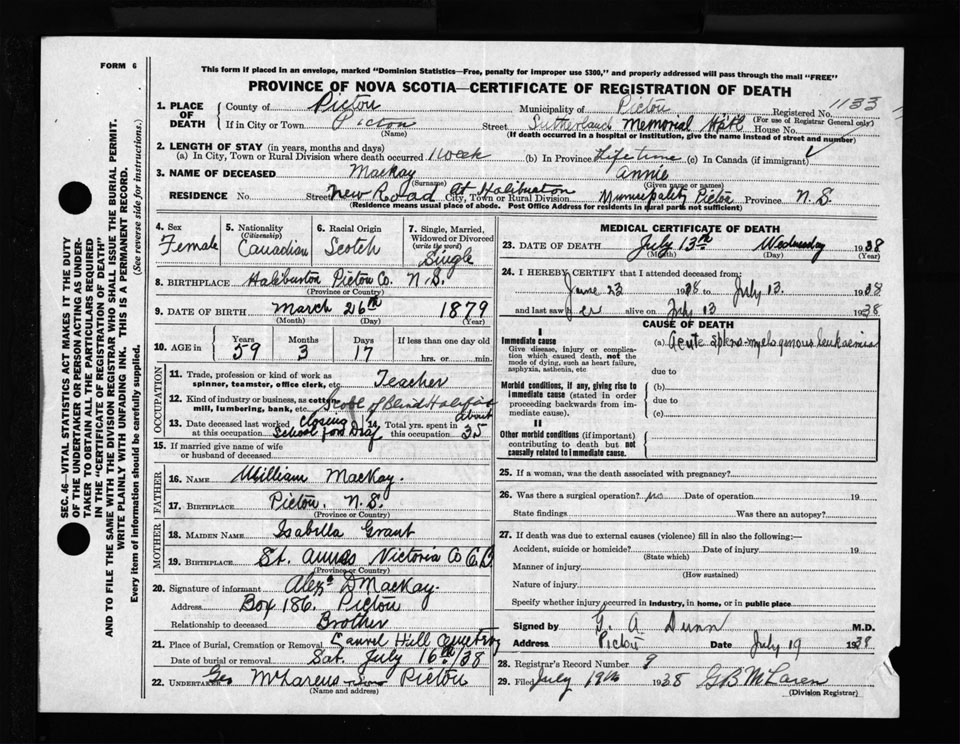 FORM 6
This form if placed in an envelope, marked "Dominion Statistics—Free, penalty for improper use $300," and properly addressed will pass through the mail "FREE"
PROVINCE OF NOVA SCOTIA—CERTIFICATE OF REGISTRATION OF DEATH
SEC. 46—VITAL STATISTICS ACT MAKES IT THE DUTY
OF THE UNDERTAKER OR PERSON ACTING AS UNDER-
TAKER TO OBTAIN ALL THE PARTICULARS REQUIRED
IN THE "CERTIFICATE OF REGISTRATION OF DEATH"
AND TO FILE THE SAME WITH THE DIVISION REGISTRAR WHO SHALL ISSUE THE BURIAL PERMIT.
WRITE PLAINLY WITH UNFADING INK. THIS IS A PERMANENT RECORD.
Every item of information should be carefully supplied. (See reverse side for instructions.)
1. PLACE OF DEATH County of Pictou Municipality of Pictou Registered No. 1133
(For use of Registrar General only)
If in City or Town Pictou Street Sutherland Memorial Hsptl House No.
(Name) (If death occurred in a hospital or institution, give the name instead of street and number)
2. LENGTH OF STAY (in years, months and days)
(a) In City, Town or Rural Division where death occurred 1 week (b) In Province Life time (c) In Canada (if immigrant)
3. NAME OF DECEASED MacKay Annie
(Surname) (Given name or names)
RESIDENCE No. Street New Road at Haliburton City, Town or Rural Division Municipality Pictou Province N. S.
(Residence means usual place of abode. Post Office Address for residents in rural parts not sufficient)
4. Sex Female
5. Nationality (Citizenship) Canadian
6. Racial Origin Scotch
7. Single, Married, Widowed or Divorced (write the word) Single
8. BIRTHPLACE Haliburton Pictou Co. N. S.
(Province or Country)
9. DATE OF BIRTH March 26th 1879
(Month) (Day) (Year)
10. AGE in Years 59 Months 3 Days 17 If less than one day old hrs. or min.
OCCUPATION
11. Trade, profession or kind of work as spinner, teamster, office clerk, etc. Teacher
12. Kind of industry or business, as cotton mill, lumbering, bank, etc. School of Blind Halifax
13. Date deceased last worked at this occupation closing School for Deaf
14. Total yrs. spent in this occupation about 35
15. If married give name of wife or husband of deceased
FATHER
16. NAME William MacKay.
17. BIRTHPLACE Pictou, N. S.
(Province or Country)
MOTHER
18. MAIDEN NAME Isabella Grant
19. BIRTHPLACE St. Anns Victoria Co C.B.
(Province or Country)
20. Signature of informant Alexr D MacKay.
Address Box 186. Pictou
Relationship to deceased Brother
21. Place of Burial, Cremation or Removal Laurel Hill Cemetery
Date of burial or removal Sat. July 16th/38
22. UNDERTAKER Geo McLarens Sons Pictou
(Name and address)
MEDICAL CERTIFICATE OF DEATH
23. DATE OF DEATH July 13th Wednesday 1938
(Month) (Day) (Year)
24. I HEREBY CERTIFY that I attended deceased from:
June 23 1938 to July 13. 1938
and last saw her alive on July 13 1938
CAUSE OF DEATH
I
Immediate cause (a) Acute spleno-myelogenous leukaemia
Give disease, injury or complication which caused death, not the mode of dying, such as heart failure, asphyxia, asthenia, etc due to
Morbid conditions, if any, giving rise to immediate cause (stated in order proceeding backwards from immediate cause). (b)
due to
(c)
II
Other morbid conditions (if important) contributing to death but not causally related to immediate cause.
25. If a woman, was the death associated with pregnancy?
26. Was there a surgical operation? no Date of operation 19
State findings Was there an autopsy?
27. If death was due to external causes (violence) fill in also the following:—
Accident, suicide or homicide? Date of injury 19
(State which)
Manner of injury
(How sustained)
Nature of injury
Specify whether injury occurred in industry, in home, or in public place
Signed by G. A. Dunn M.D.
Address Pictou Date July 19 1938
28. Registrar's Record Number 9
29. Filed July 19th 1938 GB McLaren
(Division Registrar)